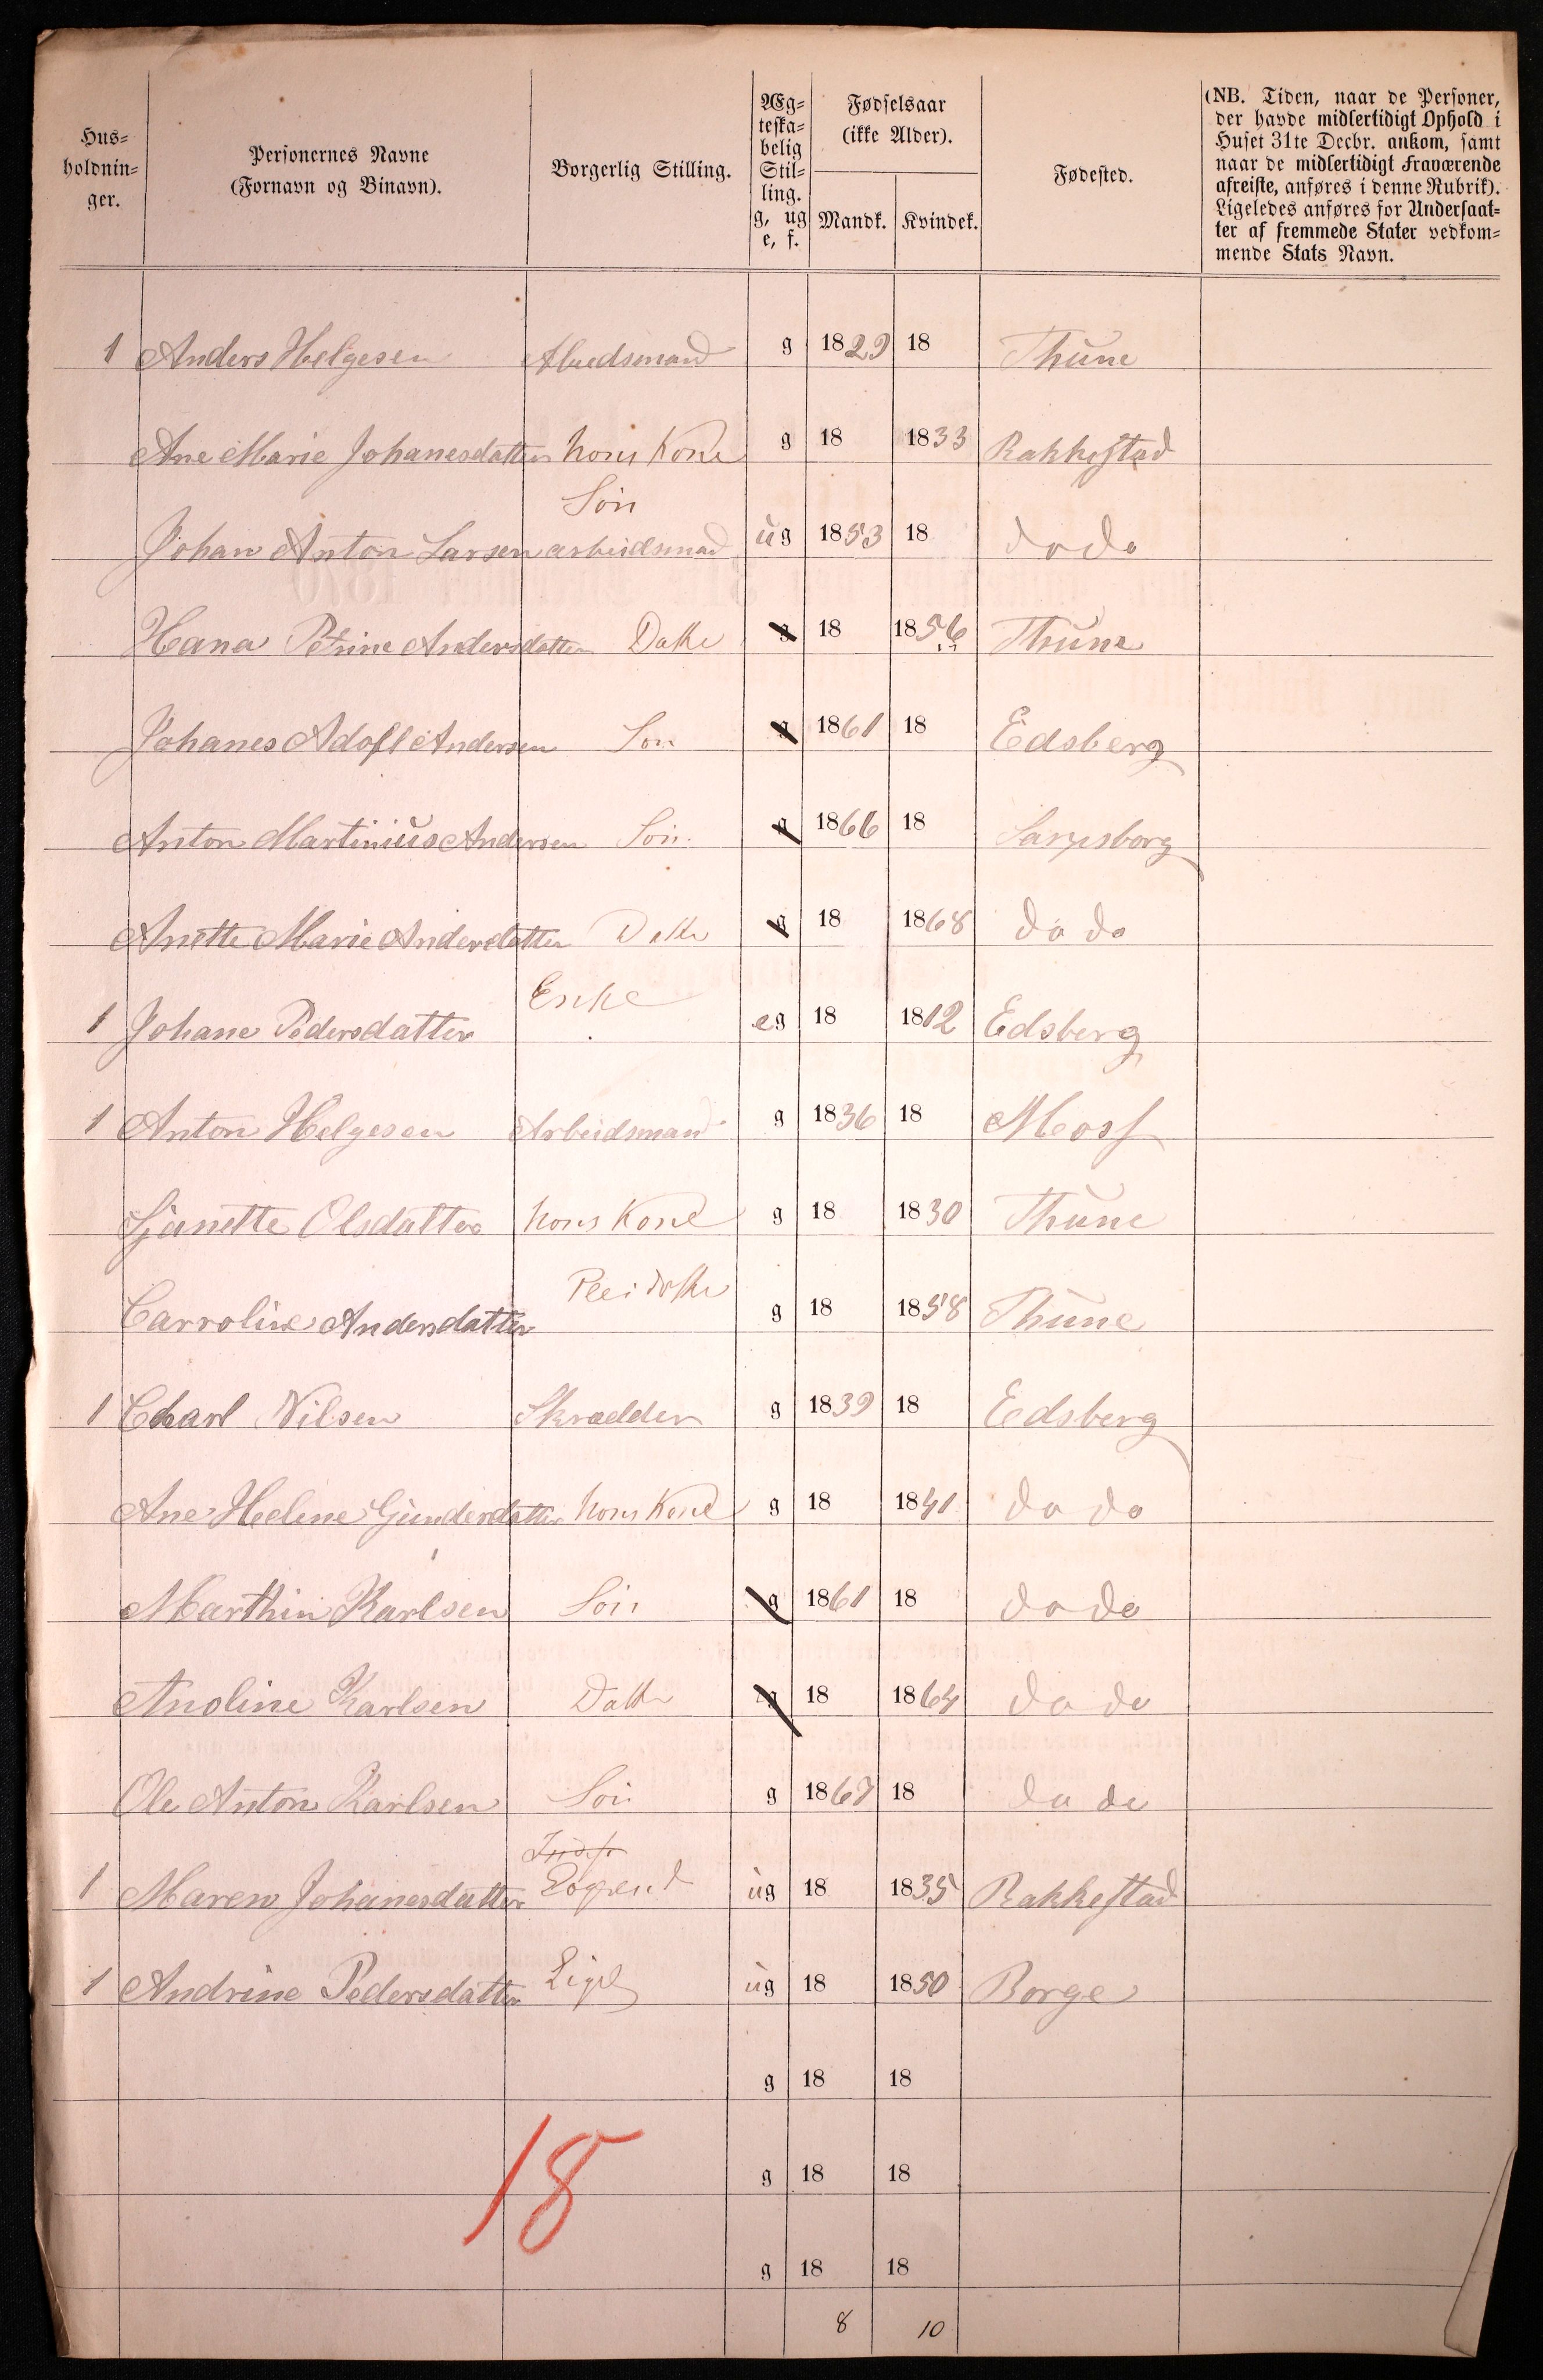 Hus-
holdnin-
ger.
Personernes Navne
(Fornavn og Binavn).
Borgerlig Stilling.
Æg-
teska-
belig
Stil-
ling.
g, ug
e, f.
Fødselsaar
(ikke Alder).
Mandk. Kvindek.
Fødested.
(NB. Tiden, naar de Personer,
der havde midlertidigt Ophold i
Huset 31te Decbr. ankom, samt
naar de midlertidigt fraværende
afreiste, anføres i denne Rubrik).
Ligeledes anføres for Undersaat-
ter af fremmede Stater vedkom-
mende Stats Navn.
1 Anders Helgesen g 1829 18 Thune
Ane Marie Johanesdatter hans Kone g 18 1833 Rakkestad
Søn
Johan Anton Larsen arbeidsmad ug 1853 18 do do
Hana Petrine Andersdatter Datte g 18 1856 Thune
Johanes Adofl Andersen Søn g 1861 18 Edsberg
Anton Martinius Andersen Søn g 1866 18 Sarpsborg
Anette Marie Andersdatter Datte g 18 1868 do do
Enke
1 Johane Pedersdatter eg 18 1812 Edsberg
1 Anton Helgesen Arbeidsmand g 1836 18 Moss
Sjanette Olsdatter hans Kone g 18 1830 Thune
Carroline Andersdatter g 18 1858 Thune
1 Charl Nilsen Skrædder g 1839 18 Edsberg
Ane Helene Gundersdatter hans Kone g 18 1841 do do
Marthin Karlsen Søn g 1861 18 do do
Anoline Karlsen Datte g 18 1864 do do
Ole Anton Karlsen Søn g 1867 18 do do
Indst
1 Maren Johanesdatter Logerend ug 18 1835 Rakkestad
1 Andrine Pedersdatter Ligel ug 18 1850 Borge
g 18 18
g 18 18
18
g 18 18
8 10